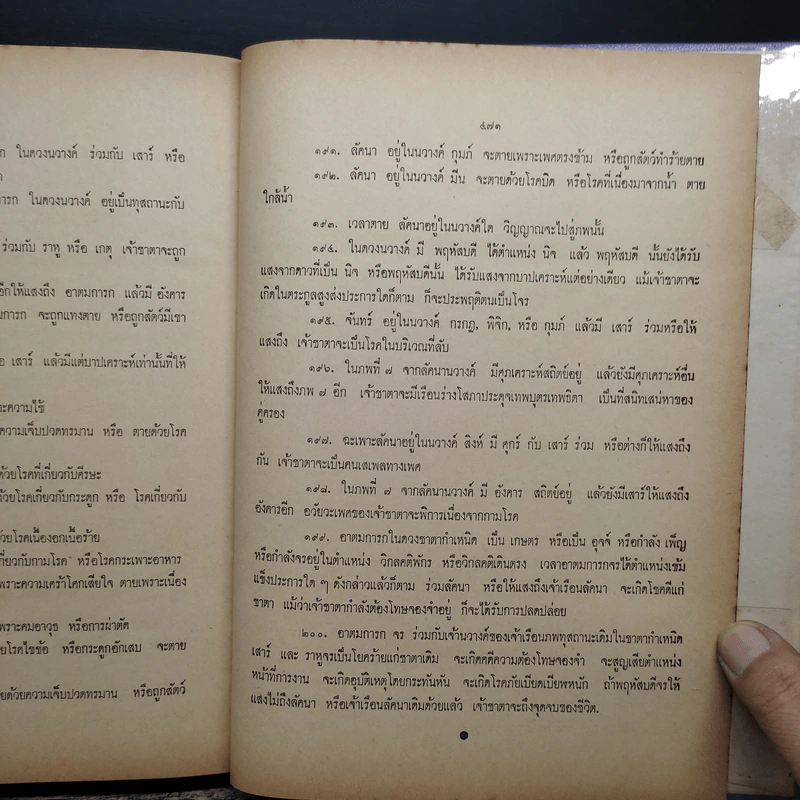 ก ในดวงนวางค์ ร่วมกับ เสาร์ หรือ
การก ในดวงนวางค์ อยู่เป็นทุสถานะกับ
ร่วมกับ ราหู หรือ เกตุ เจ้าชาตาจะถูก
อีกให้แสงถึง อาตมการก แล้วมี อังคาร
มการก จะถูกแทงตาย หรือถูกสัตว์มีเขา
อ เสาร์ แล้วมีแต่บาปเคราะห์เท่านั้นที่ให้
ะความใช้
ความเจ็บปวดทรมาน หรือ ตายด้วยโรค
ด้วยโรคที่เกี่ยวกับศีรษะ
ด้วยโรคเกี่ยวกับกระดูก หรือ โรคเกี่ยวกับ
ยโรคเนื้องอกเนื้อร้าย
กี่ยวกับกามโรค หรือโรคกระเพาะอาหาร
พราะความเศร้าโศกเสียใจ ตายเพราะเนื่อง
พราะคมอาวุธ หรือการผ่าตัด
ยโรคไขข้อ หรือกระดูกอักเสบ จะตาย
ยด้วยความเจ็บปวดทรมาน หรือถูกสัตว์
๔๗๑
๑๙๑. ลัคนา อยู่ในนวางค์ กุมภ์ จะตายเพราะเพศตรงข้าม หรือถูกสัตว์ทำร้ายตาย
๑๙๒. ลัคนา อยู่ในนวางค์ มีน จะตายด้วยโรคบิด หรือโรคที่เนื่องมาจากน้ำ ตาย
ใกล้น้ำ
๑๙๓. เวลาตาย ลัคนาอยู่ในนวางค์ใด วิญญาณจะไปสู่ภพนั้น
๑๙๔. ในดวงนวางค์ มี พฤหัสบดี ได้ตำแหน่ง นิจ แล้ว พฤหัสบดี นั้นยังได้รับ
แสงจากดาวที่เป็น นิจ หรือพฤหัสบดีนั้น ได้รับแสงจากบาปเคราะห์แต่อย่างเดียว แม้เจ้าชาตาจะ
เกิดในตระกูลสูงส่งประการใดก็ตาม ก็จะประพฤติตนเป็นโจร
๑๙๕. จันทร์ อยู่ในนวางค์ กรกฎ, พิจิก, หรือ กุมภ์ แล้วมี เสาร์ ร่วมหรือให้
แสงถึง เจ้าชาตาจะเป็นโรคในบริเวณที่ลับ
๑๙๖. ในภพที่ ๗ จากลัคนานวางค์ มีศุภเคราะห์สถิตย์อยู่ แล้วยังมีศุภเคราะห์อื่น
ให้แสงถึงภพ ๗ อีก เจ้าชาตาจะมีเรือนร่างโสภาประดุจเทพบุตรเทพธิดา เป็นที่สนิทเสน่หาของ
คู่ครอง
๑๙๗. ฉะเพาะลัคนาอยู่ในนวางค์ สิงห์ มี ศุกร์ กับ เสาร์ ร่วม หรือต่างก็ให้แสงถึง
กัน เจ้าชาตาจะเป็นคนเสเพลทางเพศ
๑๙๘. ในภพที่ ๗ จากลัคนานวางค์ มี อังคาร สถิตย์อยู่ แล้วยังมีเสาร์ให้แสงถึง
อังคารอีก อวัยวะเพศของเจ้าชาตาจะพิการเนื่องจากกามโรค
๑๙๙. อาตมการกในดวงชาตากำเหนิด เป็น เกษตร หรือเป็น อุจจ์ หรือกำลัง เพ็ญ
หรือกำลังจรอยู่ในตำแหน่ง วิกลคติพักร หรือวิกลคติเดินตรง เวลาอาตมการกจรได้ตำแหน่งเข้ม
แข็งประการใด ๆ ดังกล่าวแล้วก็ตาม ร่วมลัคนา หรือให้แสงถึงเจ้าเรือนลัคนา จะเกิดโชคดีแก่
ชาตา แม้ว่าเจ้าชาตากำลังต้องโทษจองจำอยู่ ก็จะได้รับการปลดปล่อย
๒๐๐. อาตมการก จร ร่วมกับเจ้านวางค์ของเจ้าเรือนภพทุสถานะเดิมในชาตากำเหนิด
เสาร์ และ ราหูจรเป็นโยคร้ายแก่ชาตาเดิม จะเกิดคดีความต้องโทษจองจำ จะสูญเสียตำแหน่ง
หน้าที่การงาน จะเกิดอุบัติเหตุโดยกระทันหัน จะเกิดโรคภัยเบียดเบียฬหนัก ถ้าพฤหัสบดีจรให้
แสงไม่ถึงลัคนา หรือเจ้าเรือนลัคนาเดิมด้วยแล้ว เจ้าชาตาจะถึงจุดจบของชีวิต.